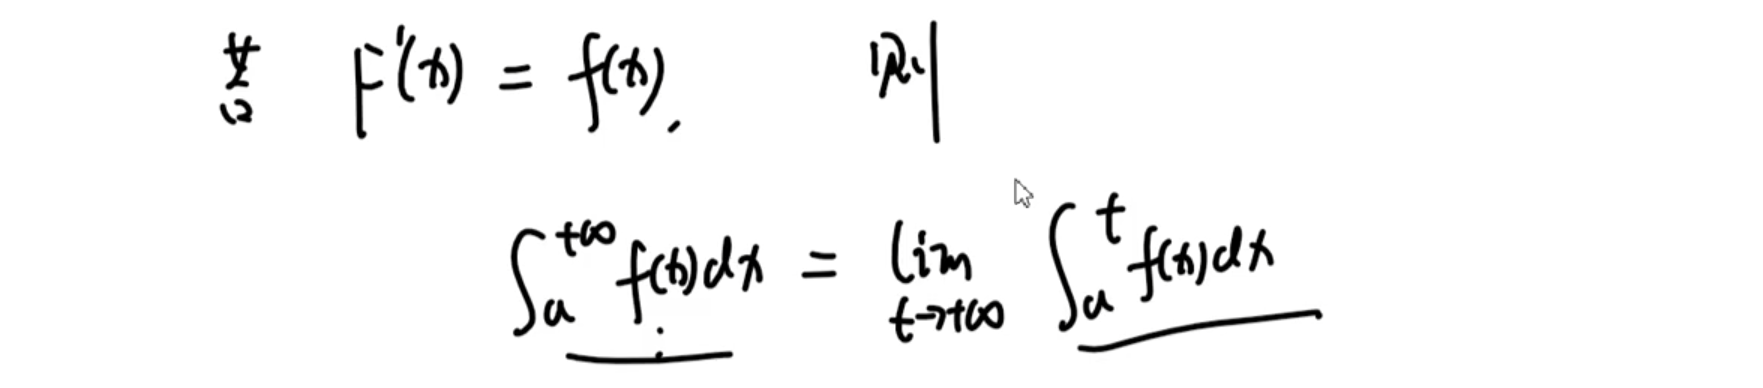 若 F'(x) = f(x), 则
∫_a^{+∞} f(x)dx = lim_{t→+∞} ∫_a^t f(x)dx